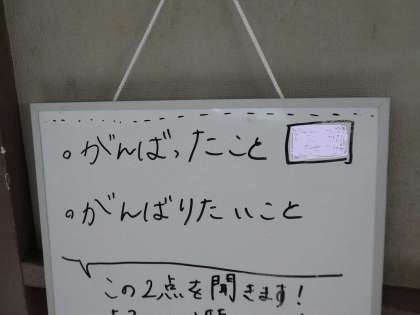 。がんばったこと
。がんばりたいこと
この2点を聞きます!